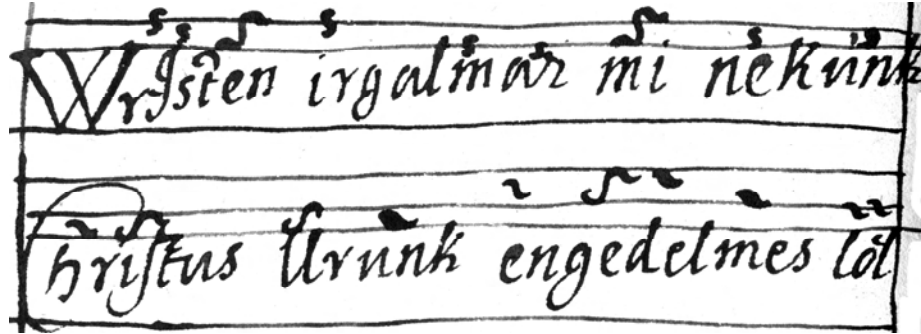 WrJsten irgalmaz mi nekünk
Chriſtus Urunk engedelmes löl